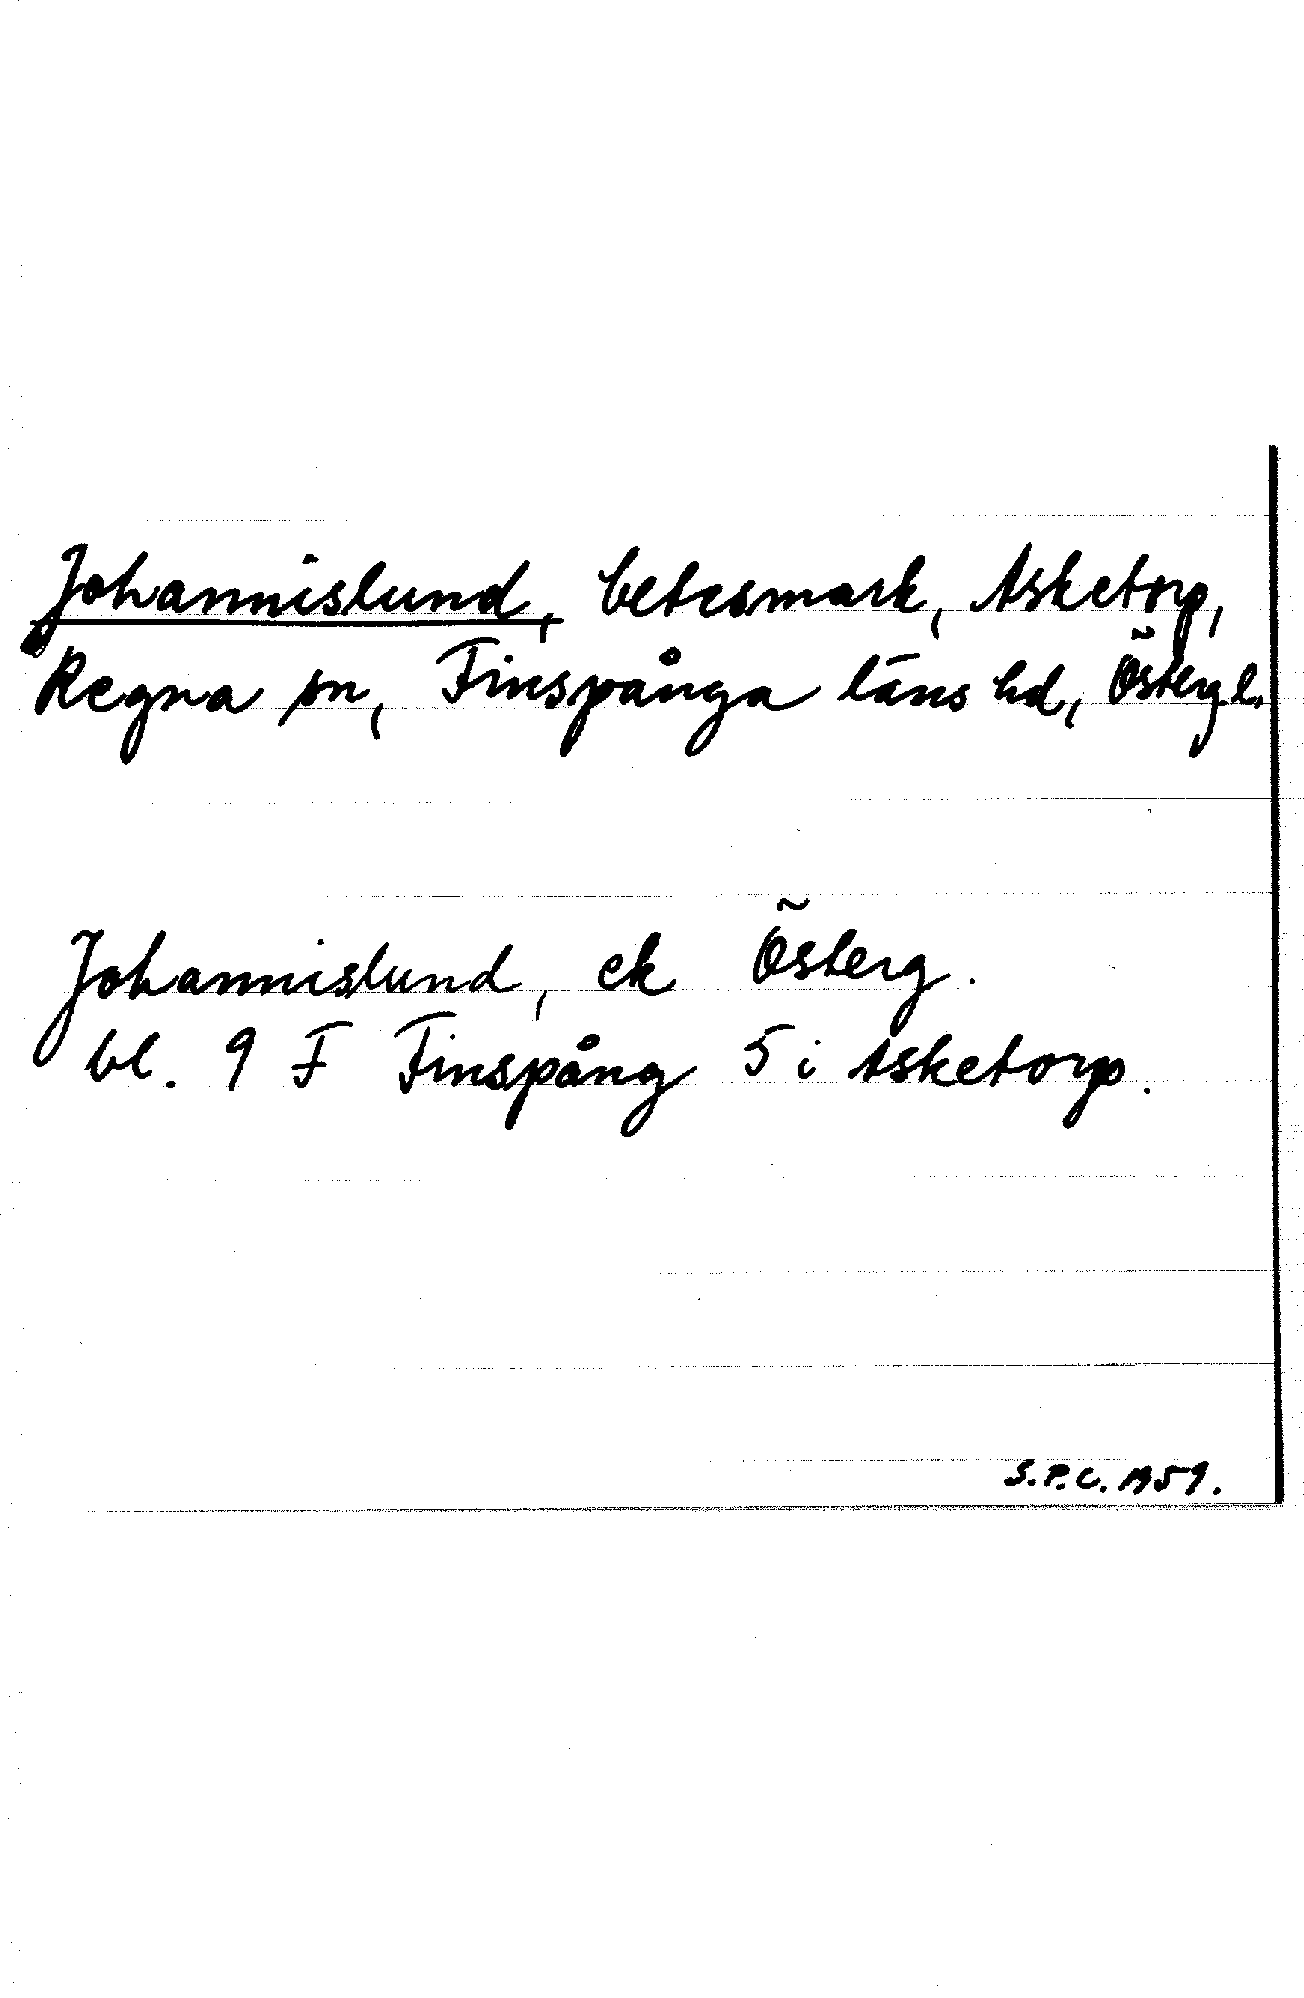 Johannislund, betesmark, Asketorp,
Regna sn, Finspånga läns hd, Östergl.
Johannislund, ek Österg.
bl. 9 F Finspång 5 i Asketorp.
S.P.C. 1959.